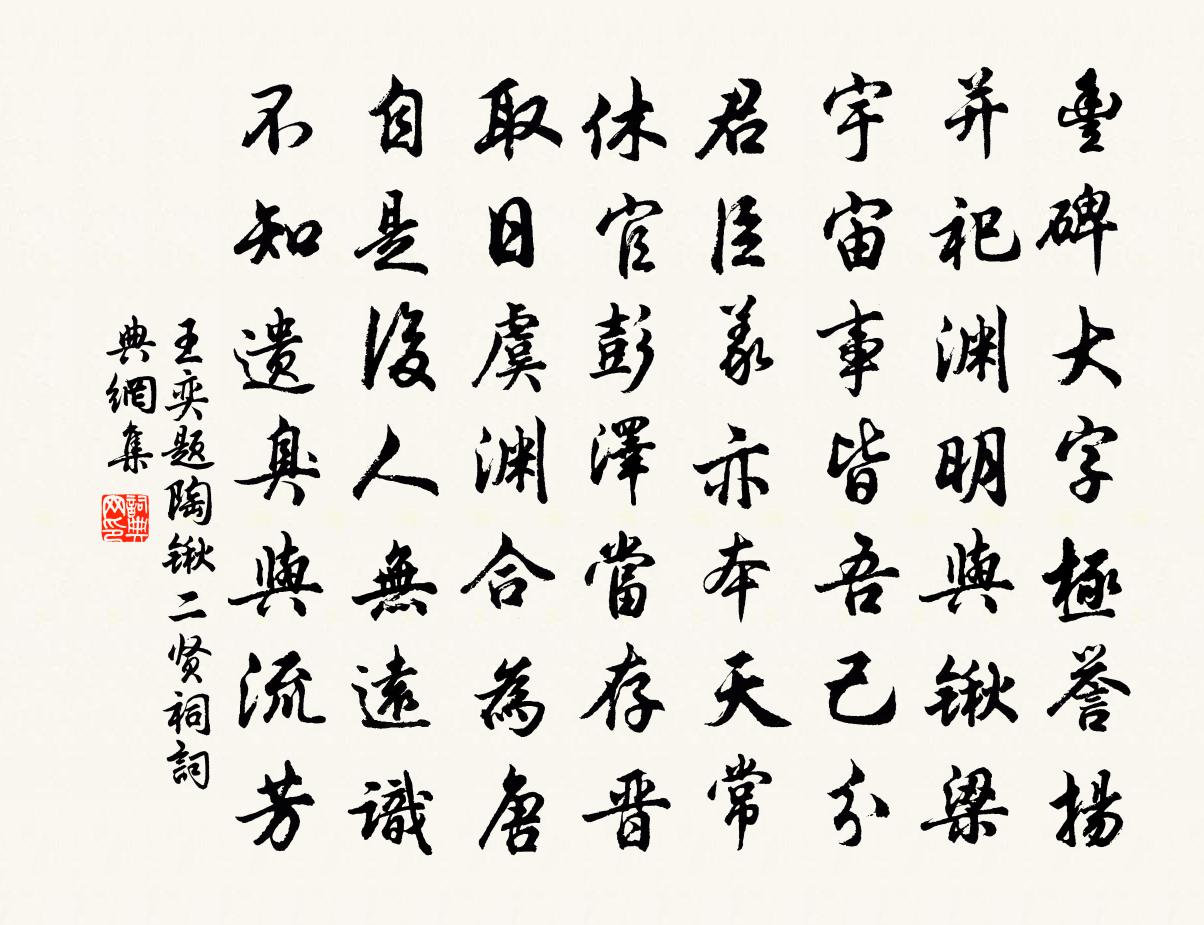 豐碑大字極譽揚
并祀渊明與锹梁
宇宙事皆吾己分
君臣义亦本天常
休官彭澤當存晋
取日虞渊合為唐
自是後人無遠識
不知遗臭與流芳
王奕题陶锹二贤祠詞
典網集
詞典网印